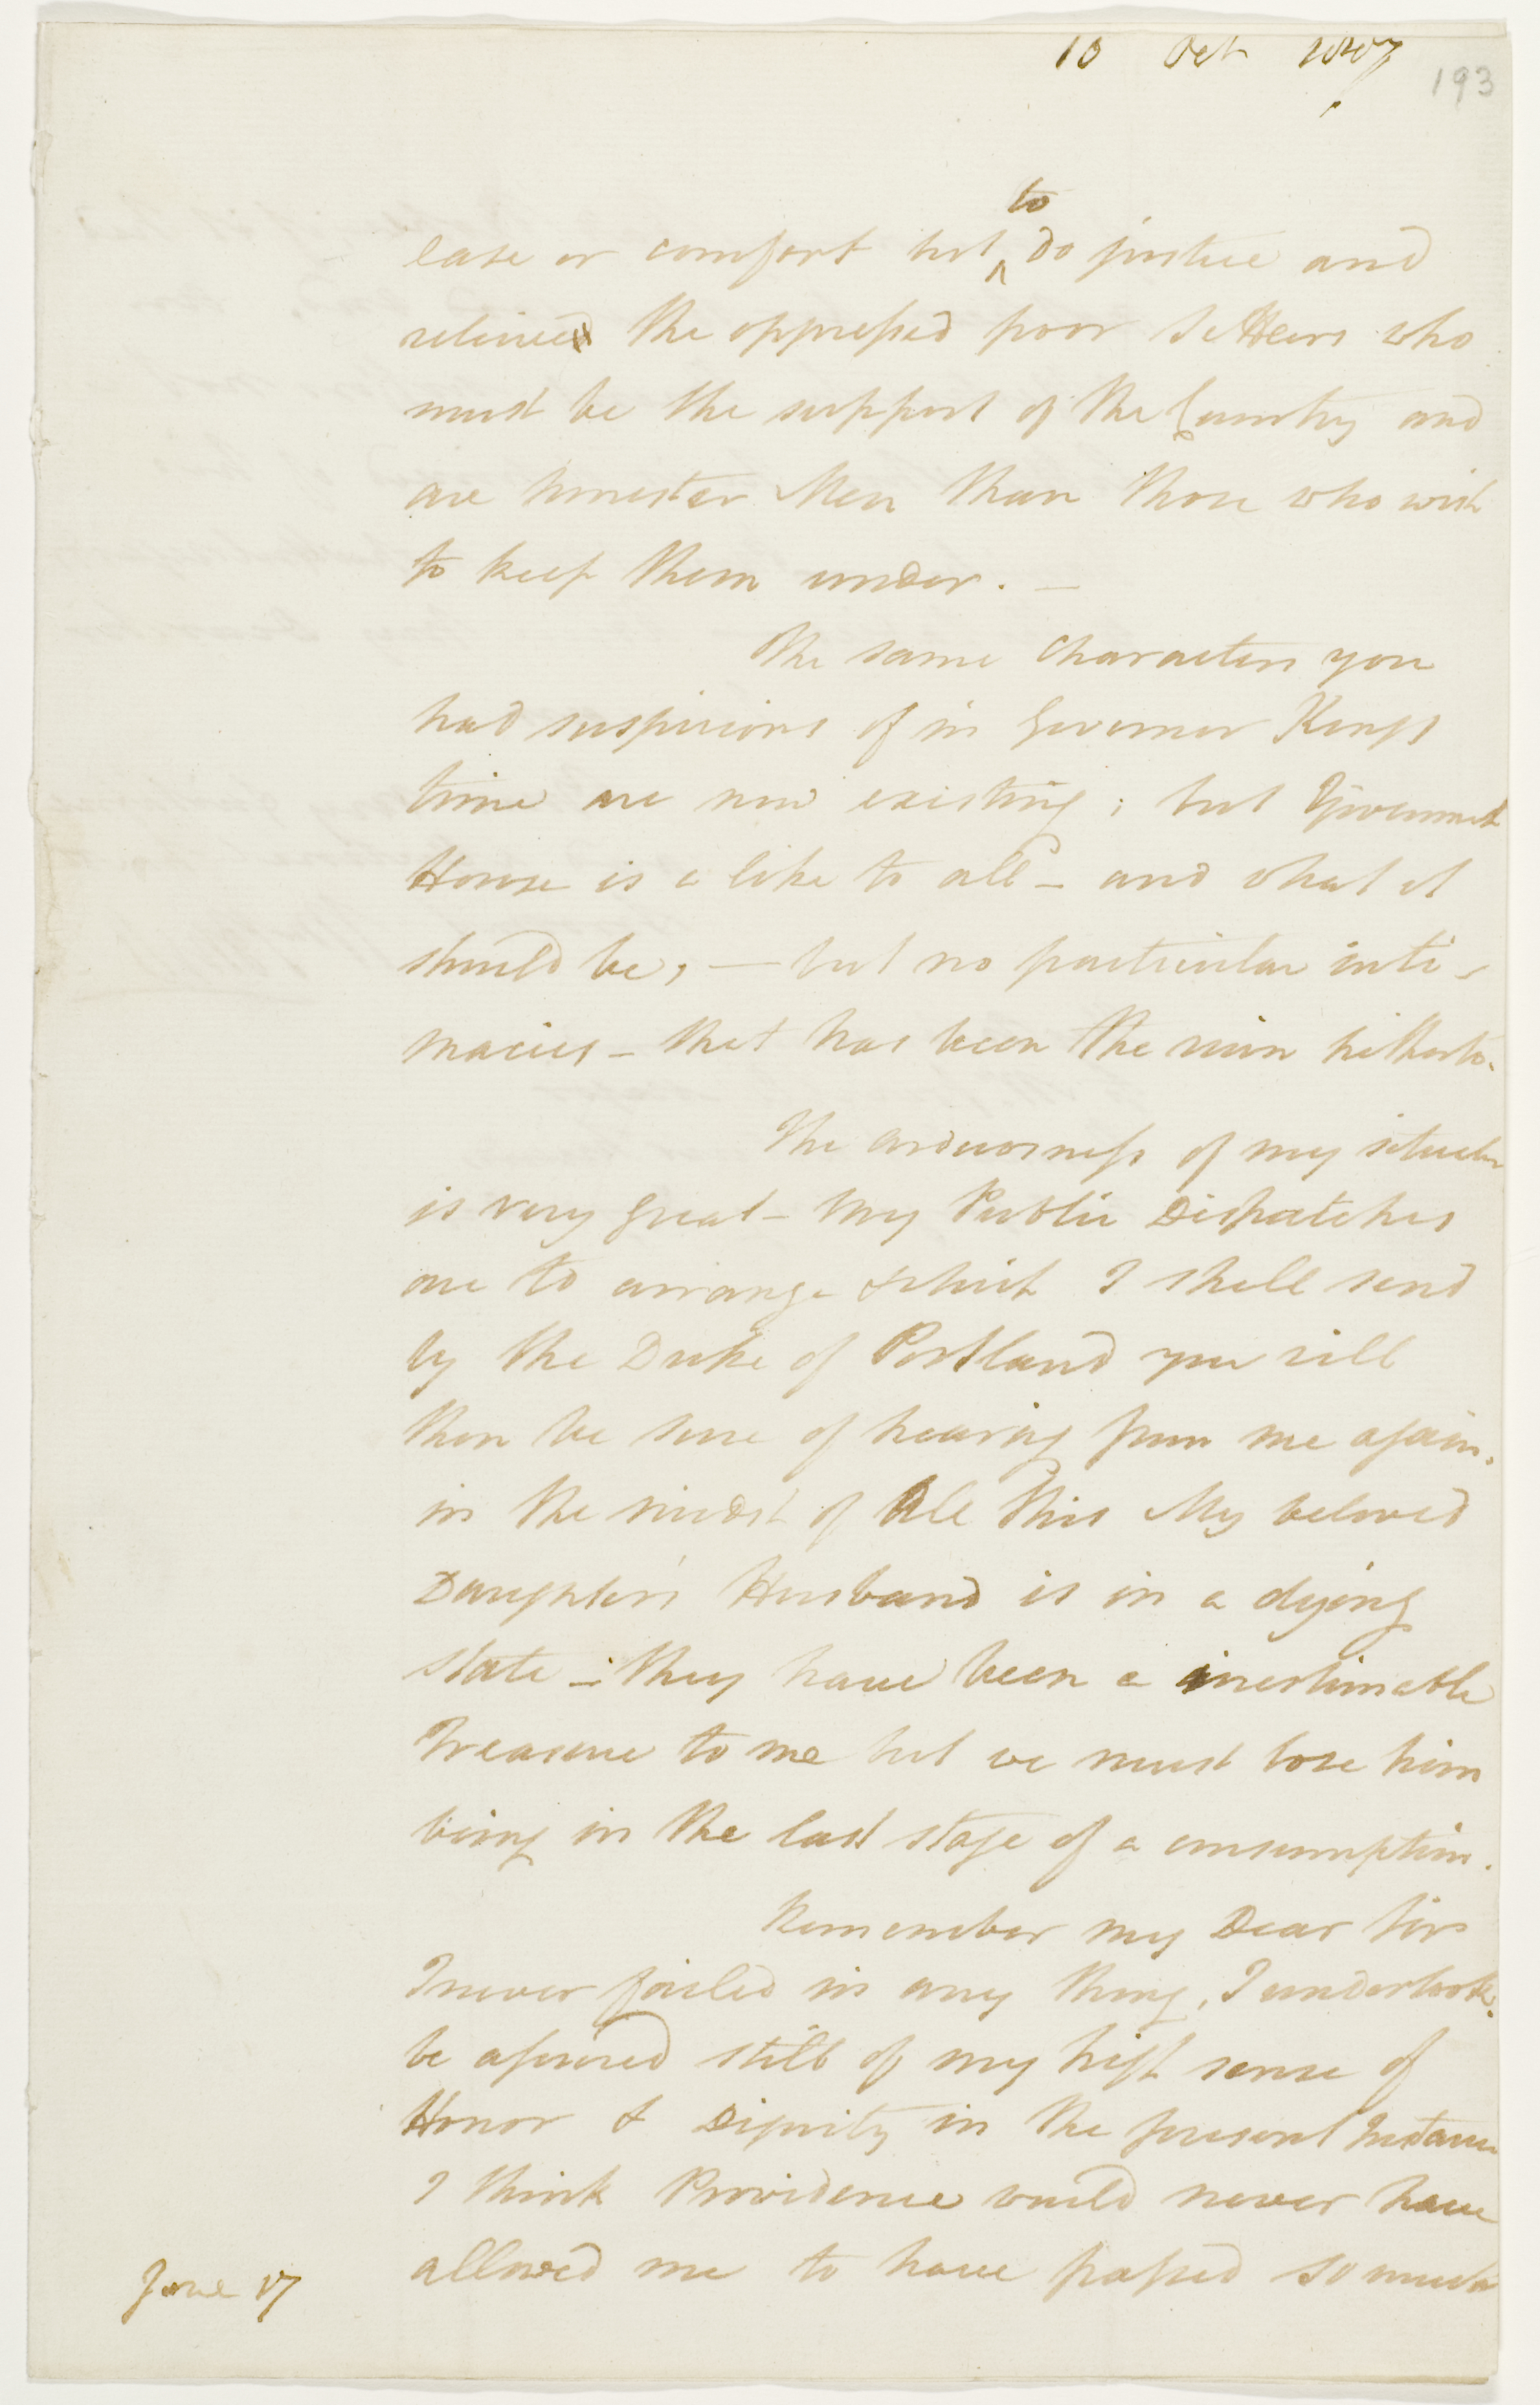 10 Oct 1807
193
ease or comfort but ^to do justice and
relieve the oppressed poor Settlers who
must be the support of the Country and
are honester Men than those who wish
to keep them under. —
The same Characters you
had suspicions of in Governor Kings
time are now existing; but Government
House is a like to all – and what it
should be, — but no particular inti-
macies – that has been the ruin hitherto.
The arduousness of my situation
is very great – My Public Dispatches
are to arrange & which I shall send
by the Duke of Portland you will
then be sure of hearing from me again.
in the midst of All this My beloved
Daughter's Husband is in a dying
state –: they have been a inestimable
Treasure to me but we must lose him
being in the last stage of a consumption.
Remember my Dear Sir
I never failed in any thing, I undertook.
be assured still of my high sense of
Honor & Dignity in the present Instance
I think Providence would never have
allowed me to have passed so much
June 17